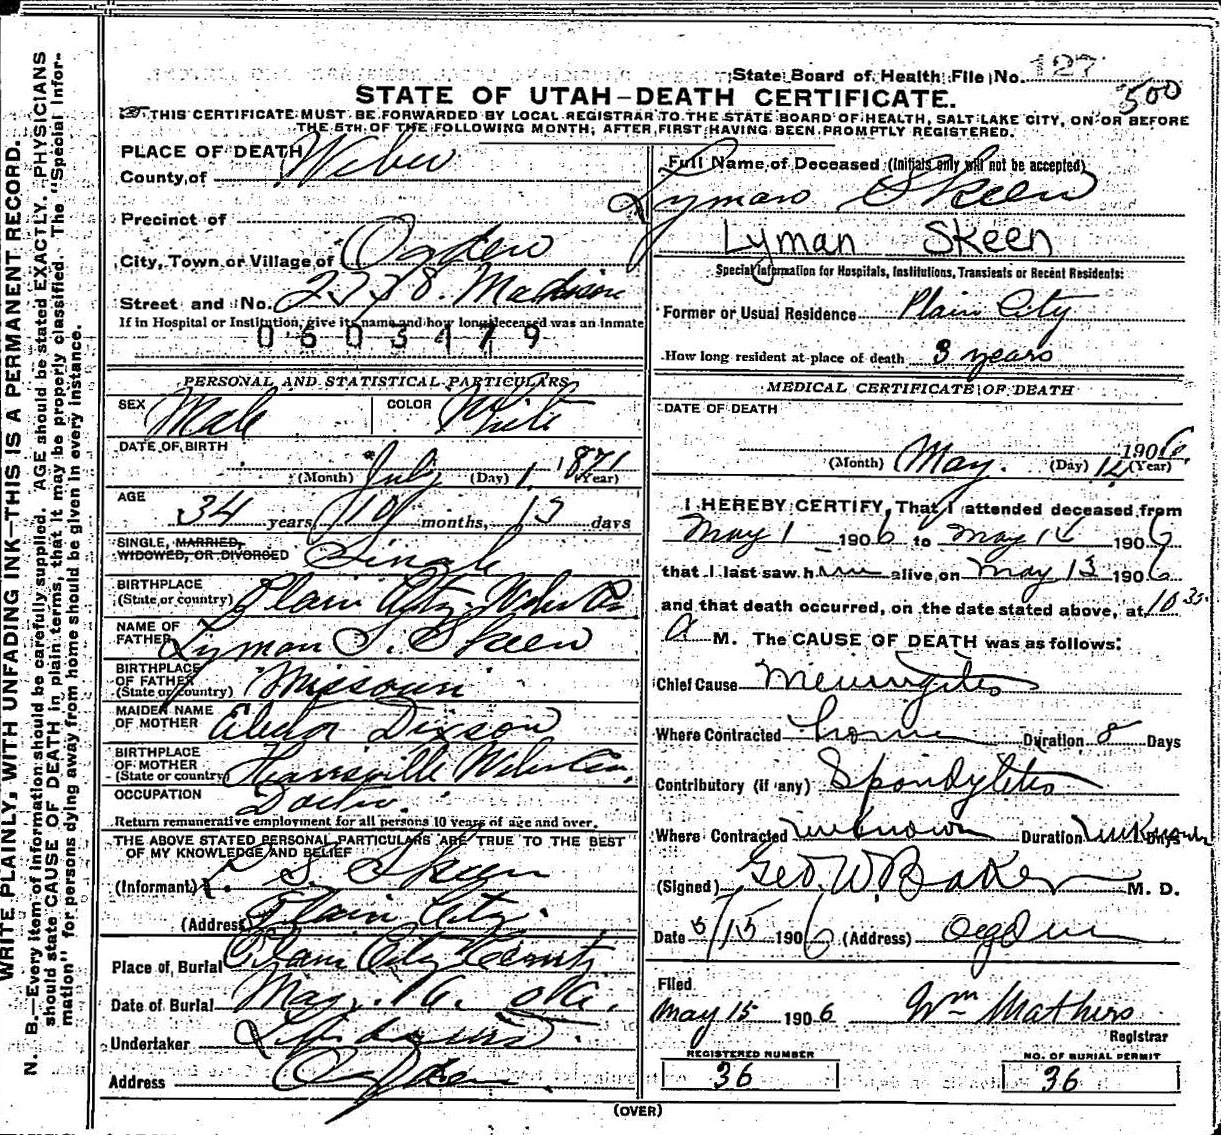 State Board of Health File No. 127
500
STATE OF UTAH—DEATH CERTIFICATE.
THIS CERTIFICATE MUST BE FORWARDED BY LOCAL REGISTRAR TO THE STATE BOARD OF HEALTH, SALT LAKE CITY, ON OR BEFORE
THE 5TH OF THE FOLLOWING MONTH, AFTER FIRST HAVING BEEN PROMPTLY REGISTERED.
WRITE PLAINLY, WITH UNFADING INK—THIS IS A PERMANENT RECORD.
N. B.—Every item of information should be carefully supplied. AGE should be stated EXACTLY. PHYSICIANS
should state CAUSE OF DEATH in plain terms, that it may be properly classified. The "Special Infor-
mation" for persons dying away from home should be given in every instance.
PLACE OF DEATH
County of Weber
Precinct of
City, Town or Village of Ogden
Street and No. Madison
If in Hospital or Institution, give its name and how long deceased was an inmate
0603479
PERSONAL AND STATISTICAL PARTICULARS
SEX Male COLOR White
DATE OF BIRTH
(Month) July (Day) 1 1871 (Year)
AGE
34 years, 10 months, 13 days
SINGLE, MARRIED,
WIDOWED, OR DIVORCED Single
BIRTHPLACE
(State or country) Plain City, Weber Co.
NAME OF
FATHER Lyman S. Skeen
BIRTHPLACE
OF FATHER
(State or country) Missouri
MAIDEN NAME
OF MOTHER Dixson
BIRTHPLACE
OF MOTHER
(State or country) Harrisville Weber Co.
OCCUPATION
Doctor.
Return remunerative employment for all persons 10 years of age and over.
THE ABOVE STATED PERSONAL PARTICULARS ARE TRUE TO THE BEST
OF MY KNOWLEDGE AND BELIEF
(Informant) L. S. Skeen
(Address) Plain City.
Place of Burial Plain City
Date of Burial May. 16.
Undertaker
Address Ogden.
Full Name of Deceased (Initials only will not be accepted)
Lyman Skeen
Lyman Skeen
Special Information for Hospitals, Institutions, Transients or Recent Residents:
Former or Usual Residence Plain City
How long resident at place of death 3 years
MEDICAL CERTIFICATE OF DEATH
DATE OF DEATH
(Month) May. (Day) 14 1906 (Year)
I HEREBY CERTIFY, That I attended deceased from
May 1 1906 to May 14 1906
that I last saw him alive on May 13 1906
and that death occurred, on the date stated above, at 10 35
a M. The CAUSE OF DEATH was as follows:
Chief Cause Meningitis
Where Contracted home Duration 8 Days
Contributory (if any) Spondylitis
Where Contracted unknown Duration unknown Days
(Signed) Geo. W. Baker M. D.
Date 5/15 1906 (Address) Ogden
Filed
May 15 1906 Wm Mathers
Registrar
REGISTERED NUMBER
36
NO. OF BURIAL PERMIT
36
(OVER)